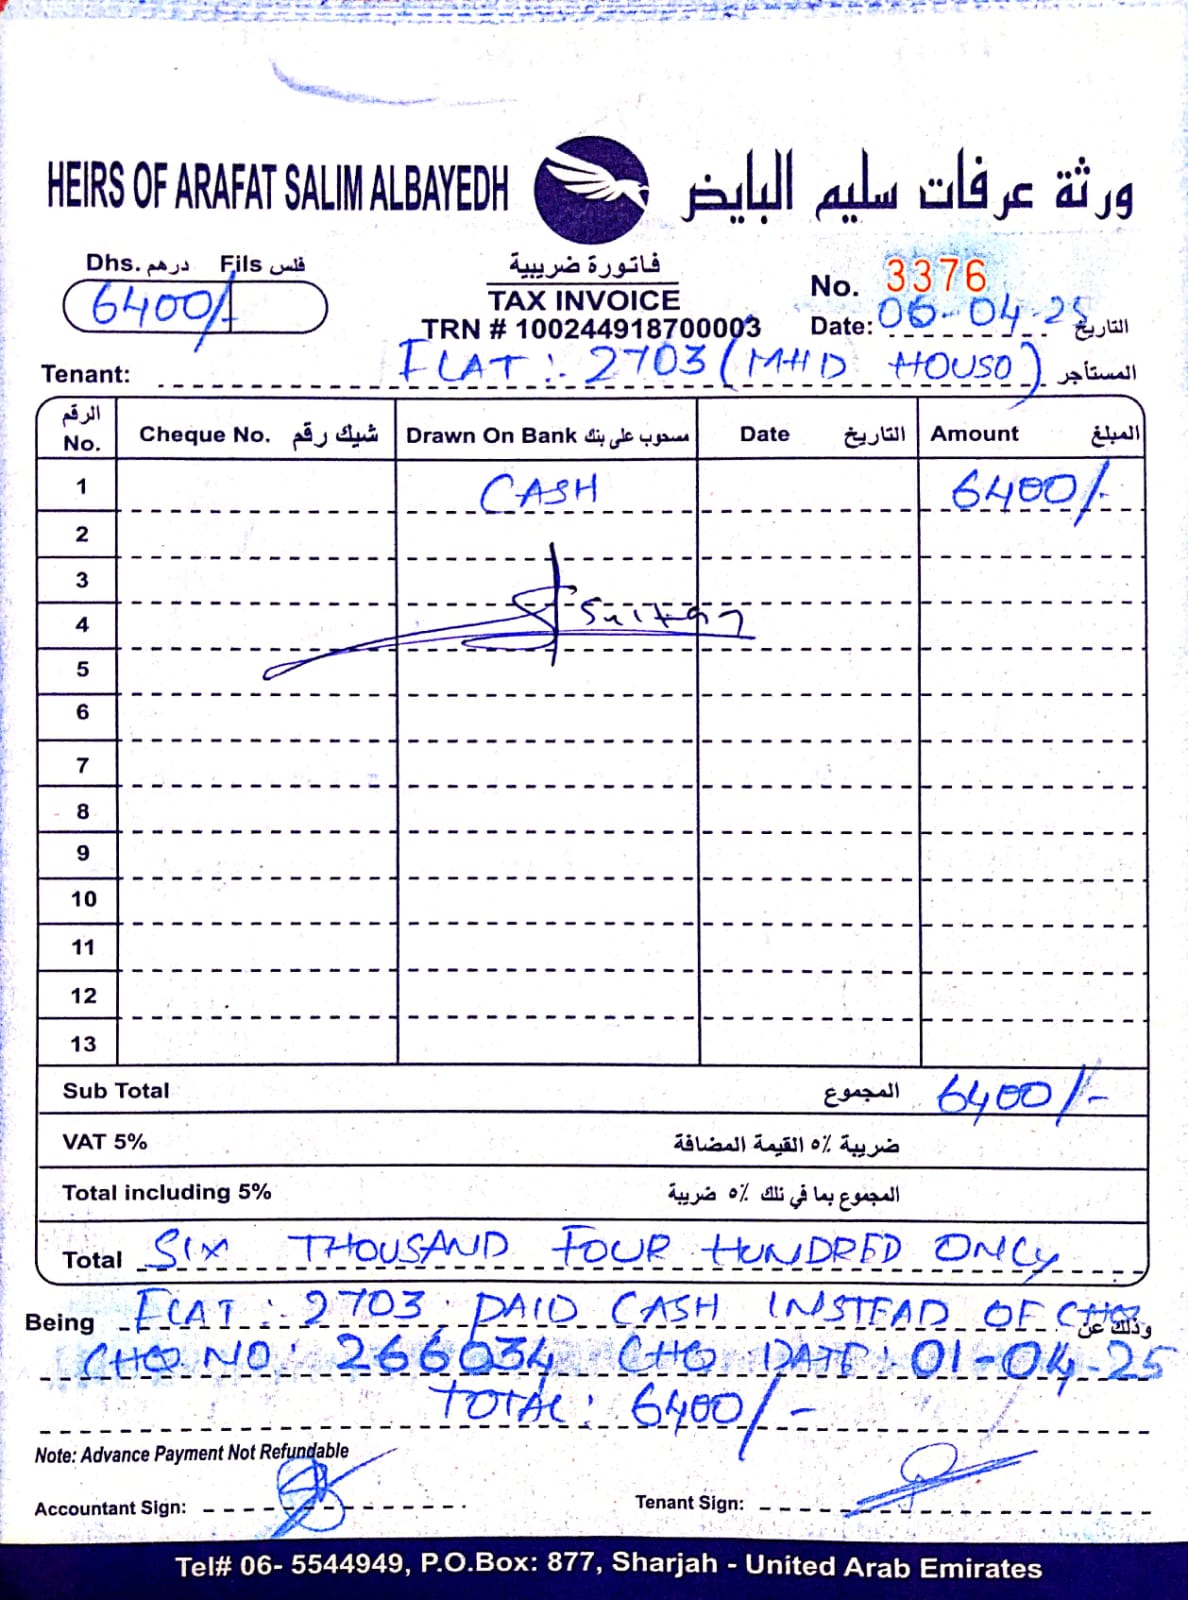 HEIRS OF ARAFAT SALIM ALBAYEDH ورثة عرفات سليم البايض
Dhs. درهم Fils فلس
6400/-
فاتورة ضريبية
TAX INVOICE
TRN # 100244918700003
No. 3376
Date: 06-04-25 التاريخ
Tenant: FLAT: 2703 (MHD HOUSO) المستأجر
الرقم No. Cheque No. شيك رقم Drawn On Bank مسحوب على بنك Date التاريخ Amount المبلغ
1 CASH 6400/-
2
3
4 Sultan
5
6
7
8
9
10
11
12
13
Sub Total المجموع 6400/-
VAT 5% ضريبة ٥٪ القيمة المضافة
Total including 5% المجموع بما في ذلك ٥٪ ضريبة
Total SIX THOUSAND FOUR HUNDRED ONLY
Being FLAT: 2703, PAID CASH INSTEAD OF CHQ وذلك عن
CHQ NO: 266034 CHQ DATE: 01-04-25
TOTAL: 6400/-
Note: Advance Payment Not Refundable
Accountant Sign: Tenant Sign:
Tel# 06- 5544949, P.O.Box: 877, Sharjah - United Arab Emirates